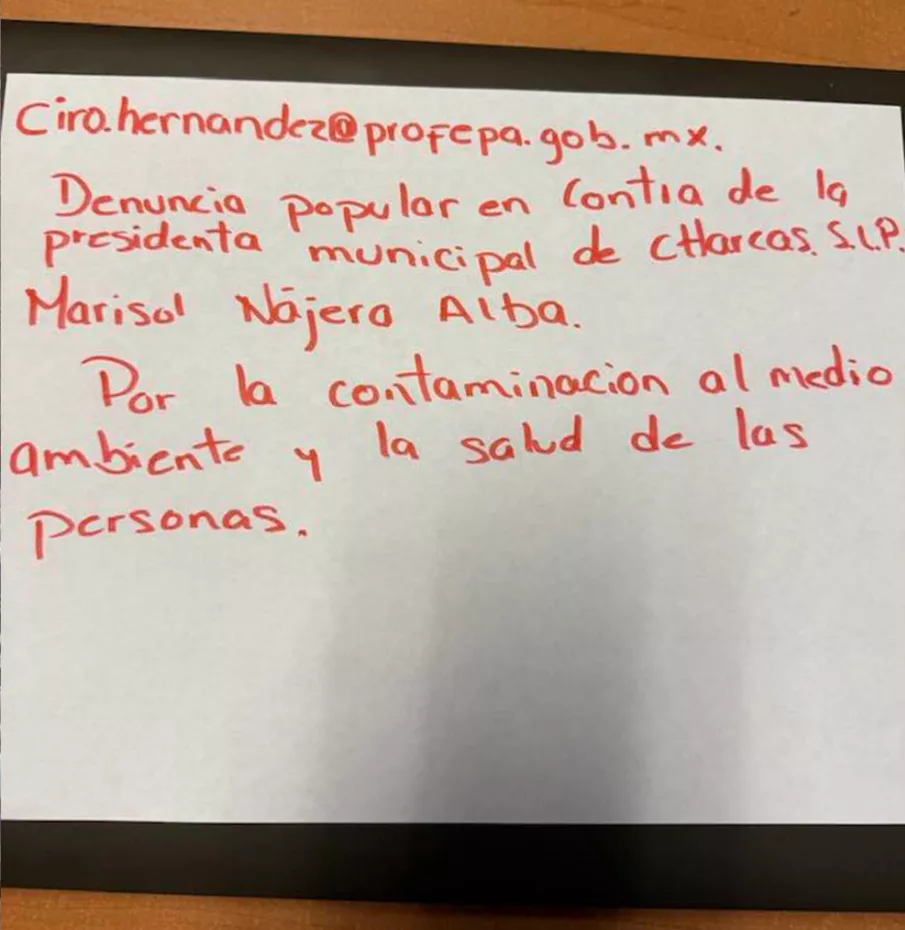 Ciro.hernandez@profepa.gob.mx.
Denuncia popular en Contra de la
presidenta municipal de cHarcas. S.L.P.
Marisol Nájera Alba.
Por la contaminacion al medio
ambiente y la salud de las
personas.